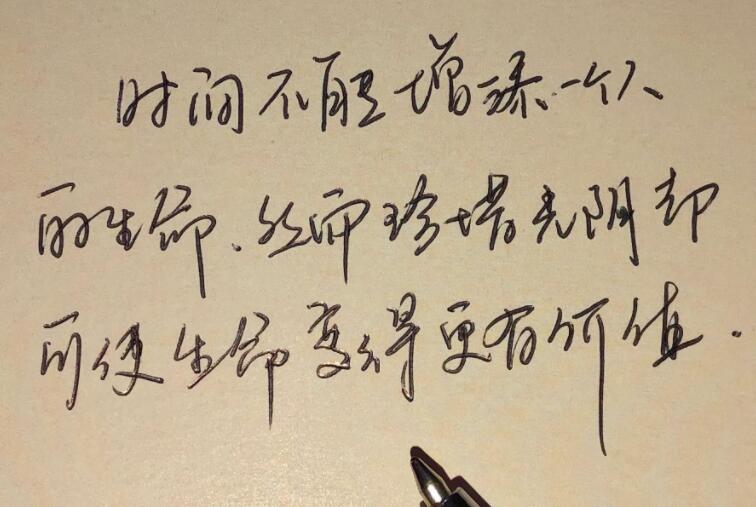 时间不能增添一个人
的生命、然而珍惜光阴却
可使生命变得更有价值.